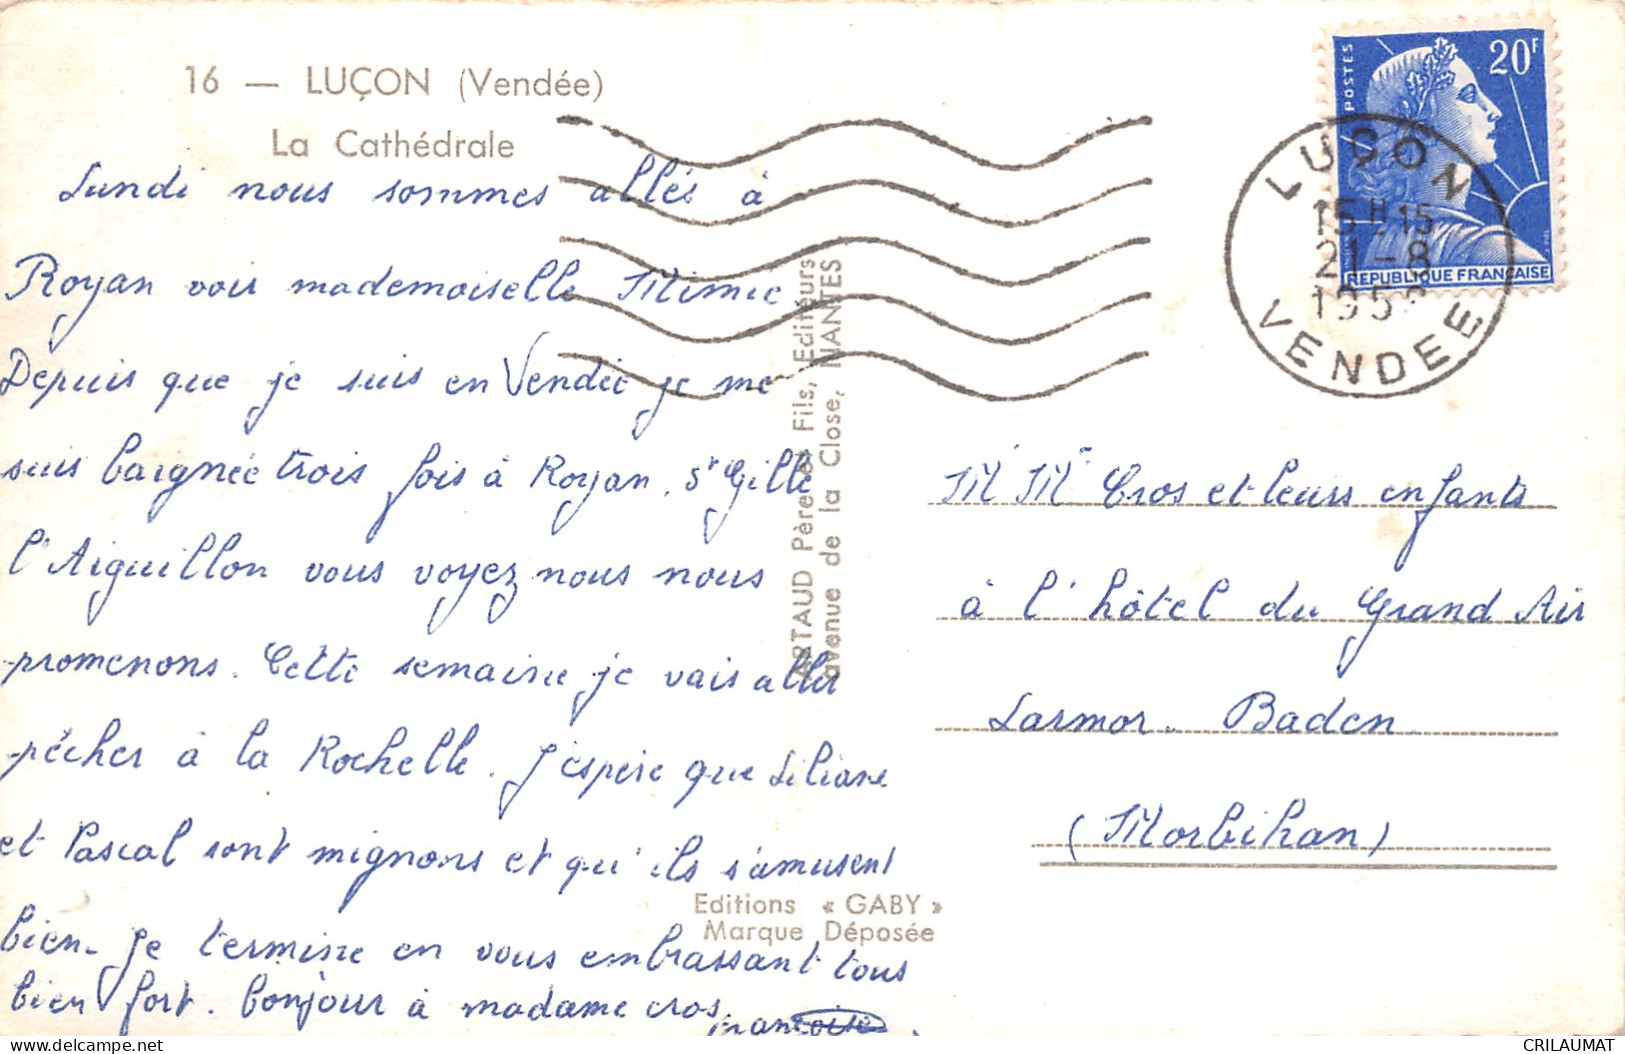 16 — LUÇON (Vendée)
La Cathédrale
Lundi nous sommes allés à
Royan voir mademoiselle Mimie
Depuis que je suis en Vendée je me
suis baignée trois fois à Royan, St Gille
l'Aiguillon vous voyez nous nous
promenons. Cette semaine je vais aller
pêcher à la Rochelle. J'espère que Liliane
et Pascal sont mignons et qu'ils s'amusent
bien. Je termine en vous embrassant tous
bien fort. bonjour à madame cros.
Francoise
ARTAUD Père et Fils, Editeurs
avenue de la Close, NANTES
Editions « GABY »
Marque Déposée
POSTES
20F
REPUBLIQUE FRANÇAISE
LUÇON
15H15
21-8
195
VENDEE
M Me Cros et leurs enfants
à l'hôtel du Grand Air
Larmor. Baden
(Morbihan)
CRILAUMAT